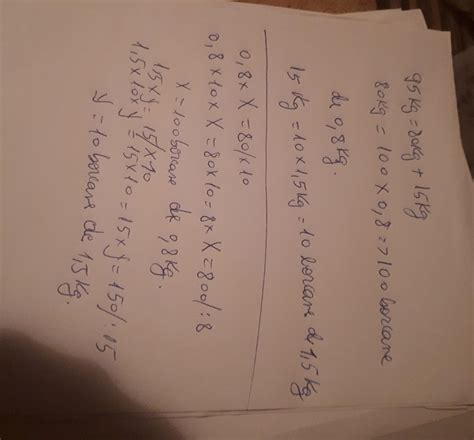 95Kg = 80Kg + 15Kg
80Kg = 100 x 0,8 => 100 borcane
de 0,8Kg.
15Kg = 10 x 1,5Kg = 10 borcane de 1,5Kg
0,8 x X = 80/x10
0,8 x 10 x X = 80 x 10 = 8 x X = 800/:8
X = 100 borcane de 0,8Kg.
1,5 x y = 15/x10
1,5 x 10 x y = 15 x 10 = 15 x y = 150/:15
y = 10 borcane de 1,5Kg.